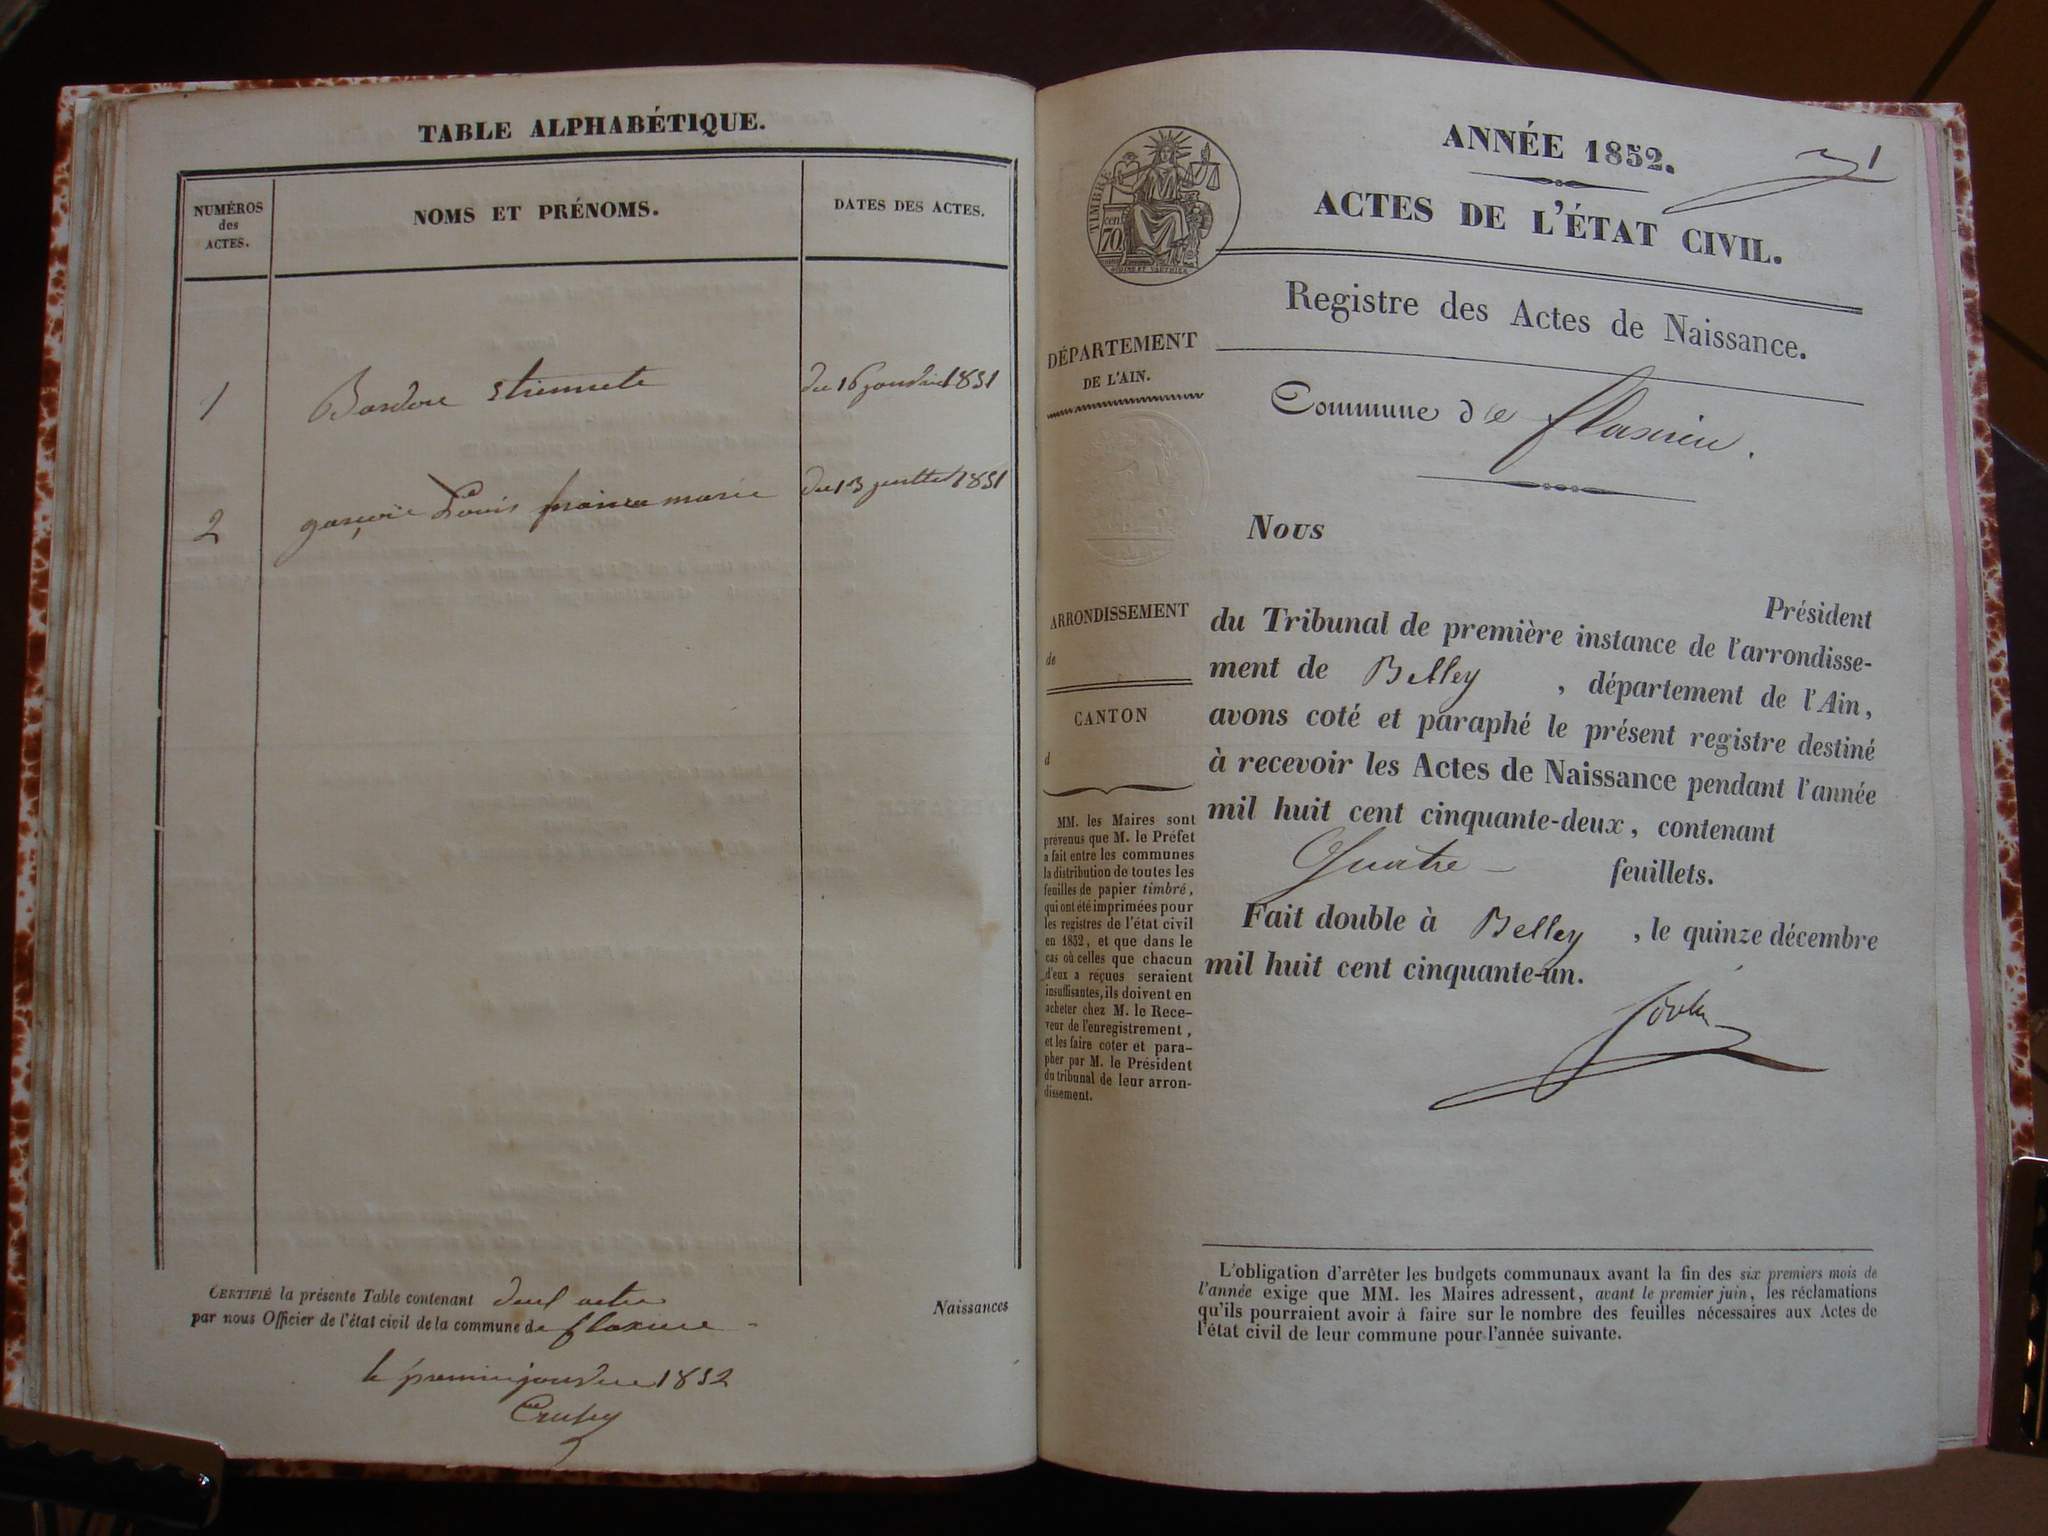 TABLE ALPHABÉTIQUE.
NUMÉROS
des
ACTES.
NOMS ET PRÉNOMS.
DATES DES ACTES.
1
du 16 1851
2
Louis marie
du 13 1851
CERTIFIÉ la présente Table contenant deux actes
Naissances
par nous Officier de l'état civil de la commune de flaxieu
le premier 1852
ANNÉE 1852.
1
ACTES DE L'ÉTAT CIVIL.
TIMBRE
cent
70
Registre des Actes de Naissance.
DÉPARTEMENT
DE L'AIN.
Commune de flaxieu.
Nous
Président
du Tribunal de première instance de l'arrondisse-
ment de Belley , département de l'Ain,
avons coté et paraphé le présent registre destiné
à recevoir les Actes de Naissance pendant l'année
mil huit cent cinquante-deux, contenant
Quatre feuillets.
Fait double à Belley , le quinze décembre
mil huit cent cinquante-un.
ARRONDISSEMENT
de
CANTON
d
MM. les Maires sont
prévenus que M. le Préfet
a fait entre les communes
la distribution de toutes les
feuilles de papier timbré,
qui ont été imprimées pour
les registres de l'état civil
en 1852, et que dans le
cas où celles que chacun
d'eux a reçues seraient
insuffisantes, ils doivent en
acheter chez M. le Rece-
veur de l'enregistrement,
et les faire coter et para-
pher par M. le Président
du tribunal de leur arron-
dissement.
L'obligation d'arrêter les budgets communaux avant la fin des six premiers mois de
l'année exige que MM. les Maires adressent, avant le premier juin, les réclamations
qu'ils pourraient avoir à faire sur le nombre des feuilles nécessaires aux Actes de
l'état civil de leur commune pour l'année suivante.